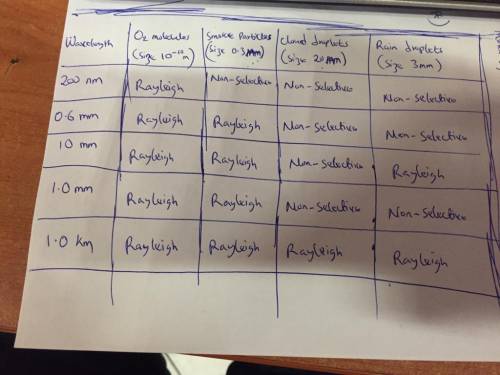 Wavelength O2 molecules (Size 10⁻¹⁰m) Smoke Particles (Size 0.3μm) Cloud droplets (Size 20μm) Rain droplets (Size 3mm)
200 nm Rayleigh Non-Selective Non-Selective Non-Selective
0.6 mm Rayleigh Rayleigh Non-Selective Non-Selective
10 mm Rayleigh Rayleigh Non-Selective Rayleigh
1.0 mm Rayleigh Rayleigh Non-Selective Non-Selective
1.0 Km Rayleigh Rayleigh Rayleigh Rayleigh